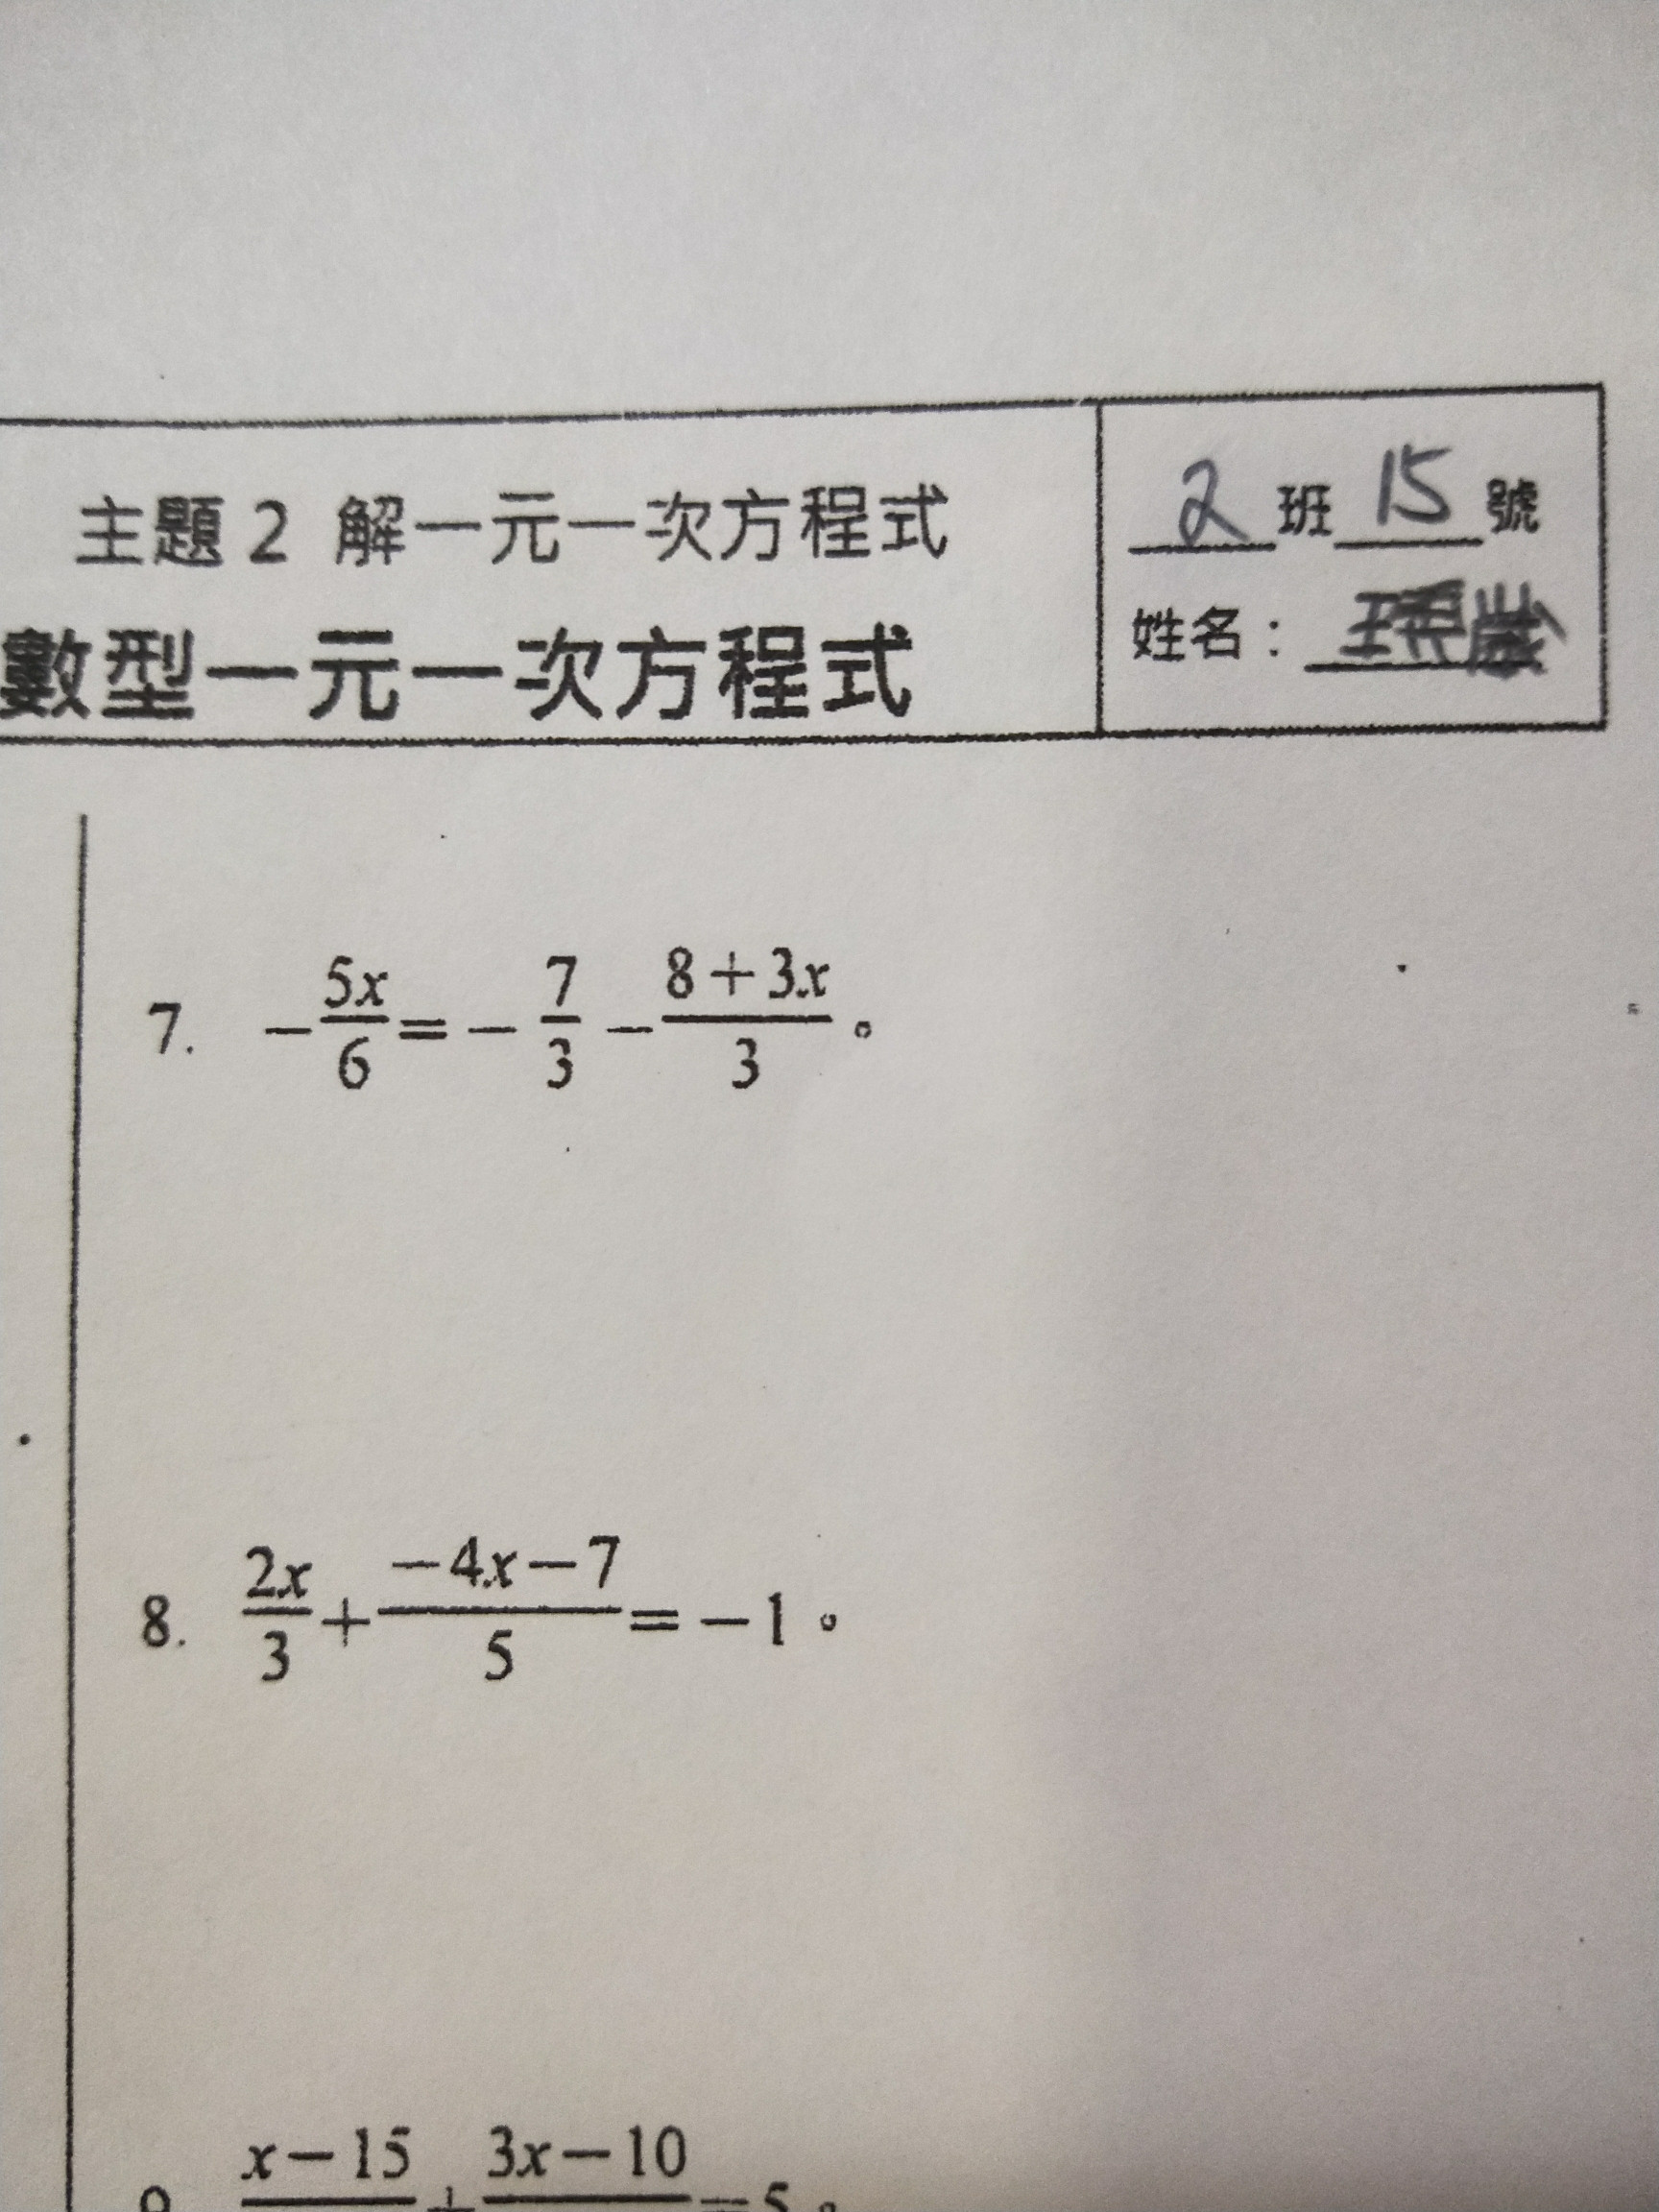 主題 2 解一元一次方程式
數型一元一次方程式
2 班 15 號
姓名：
7. −5x/6 = −7/3 − (8+3x)/3 。
8. 2x/3 + (−4x−7)/5 = −1 。
x−15 + 3x−10 = 5 。